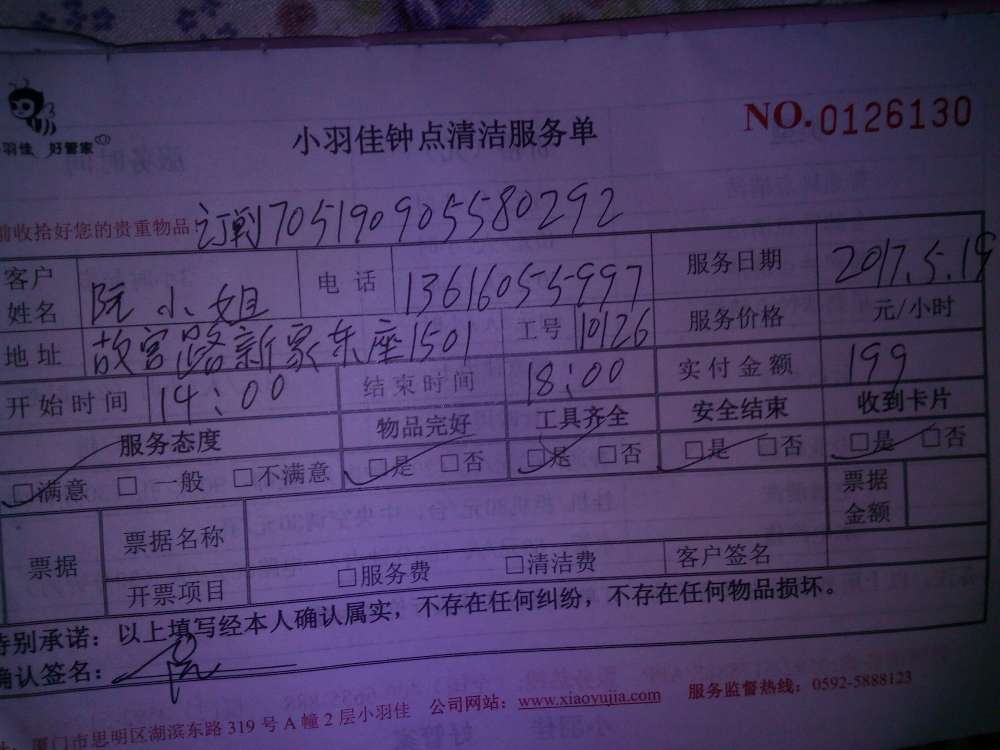 羽佳 好管家
小羽佳钟点清洁服务单
NO.0126130
前收拾好您的贵重物品: 订单705190905580292
客户姓名 阮小姐 电话 13616055997 服务日期 2017.5.19
地址 故宫路新家东座1501 工号 10126 服务价格 元/小时
开始时间 14:00 结束时间 18:00 实付金额 199
服务态度 物品完好 工具齐全 安全结束 收到卡片
□满意 □一般 □不满意 □是 □否 □是 □否 □是 □否 □是 □否
票据 票据名称 票据金额
开票项目 □服务费 □清洁费 客户签名
特别承诺：以上填写经本人确认属实，不存在任何纠纷，不存在任何物品损坏。
确认签名： 阮
厦门市思明区湖滨东路 319 号 A 幢 2 层小羽佳 公司网站：www.xiaoyujia.com 服务监督热线：0592-5888123